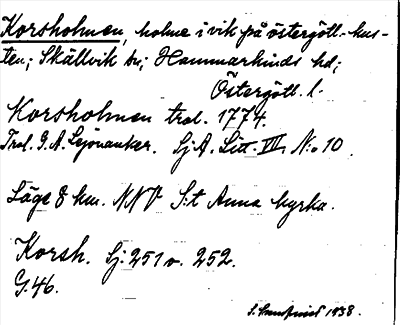 Korsholmen, holme i vik på östergötl. kus-
ten; Skällvik sn; Hammarkinds hd;
Östergötl. l.
Korsholmen trol. 1774.
Trol. G. A. Lejonanker. Sj A. Litt. VIII, N:o 10.
Läge 8 km. NNV S:t Anna kyrka.
Korsh. Sj: 251 v. 252.
G: 46.
1938.